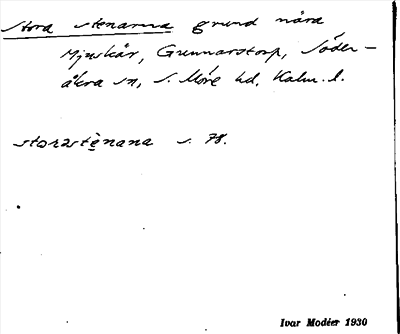 Stora stenarna grund nära
Mjuskär, Gunnarstorp, Söder-
åkra sn, S. Möre hd, Kalm. l.
storastènana s. 78.
Ivar Modéer 1930